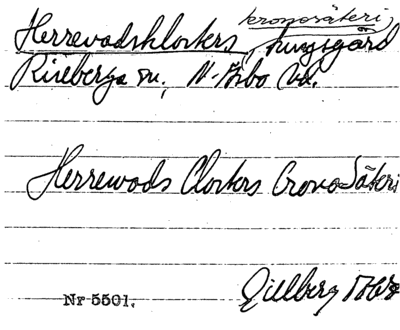 kronosäteri,
Herrevadsklosters, kungsgård
Riseberga sn, N. Åsbo hd.
Herrewods Closters Crono-Säteri
Gillberg
Nr 5501.